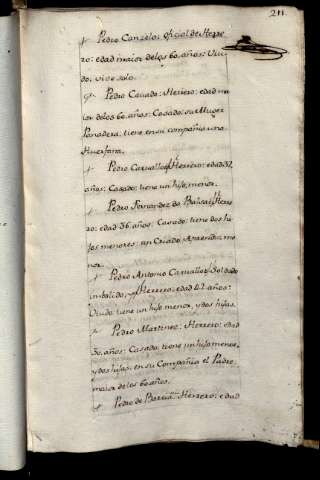 211.
Pedro Canzelo: oficial de Herre
ro: edad maior delos 60 años: Viu
do: vive solo.
Pedro Cavado: Herrero: edad ma
ior delos 60 años: Casado: su Muger
Panadera: tiene en su compañia una
Huerfana.
Pedro Carvallo Herrero: edad 32
años: Casado: tiene un hijo menor.
Pedro Fernandez do Herre
ro: edad 36 años: Casado: tiene dos hi
jos menores: un Criado, Aprendiz me
nor.
Pedro Antonio Carvallo Soldado
imbalido, y Herrero: edad 42 años:
Viudo: tiene un hijo menor, y dos hijas.
Pedro Martinez: Herrero: edad
50 años: Casado: tiene un hijo menor,
y dos hijas: en su Compañia el Padre
maior delos 60 años.
Pedro de Herrero: edad